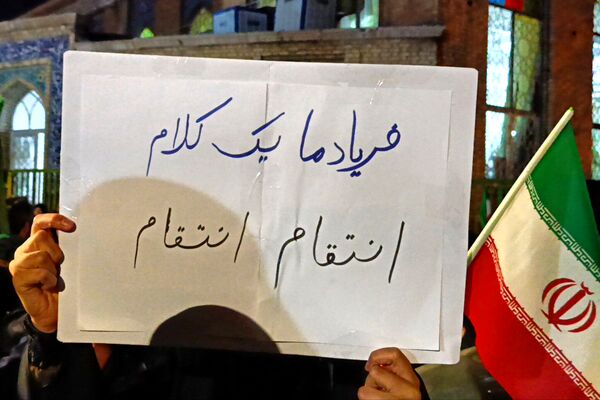 فریاد ما یک کلام
انتقام انتقام